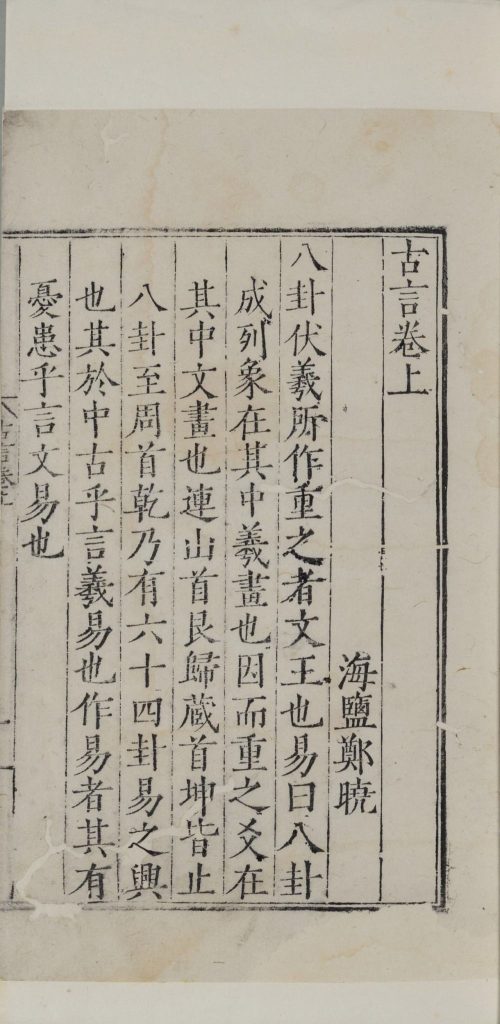 古言卷上
海鹽鄭曉
八卦伏羲所作重之者文王也易曰八卦
成列象在其中羲畫也因而重之爻在
其中文畫也連山首艮歸藏首坤皆止
八卦至周首乾乃有六十四卦易之興
也其於中古乎言羲易也作易者其有
憂患乎言文易也
古言卷上